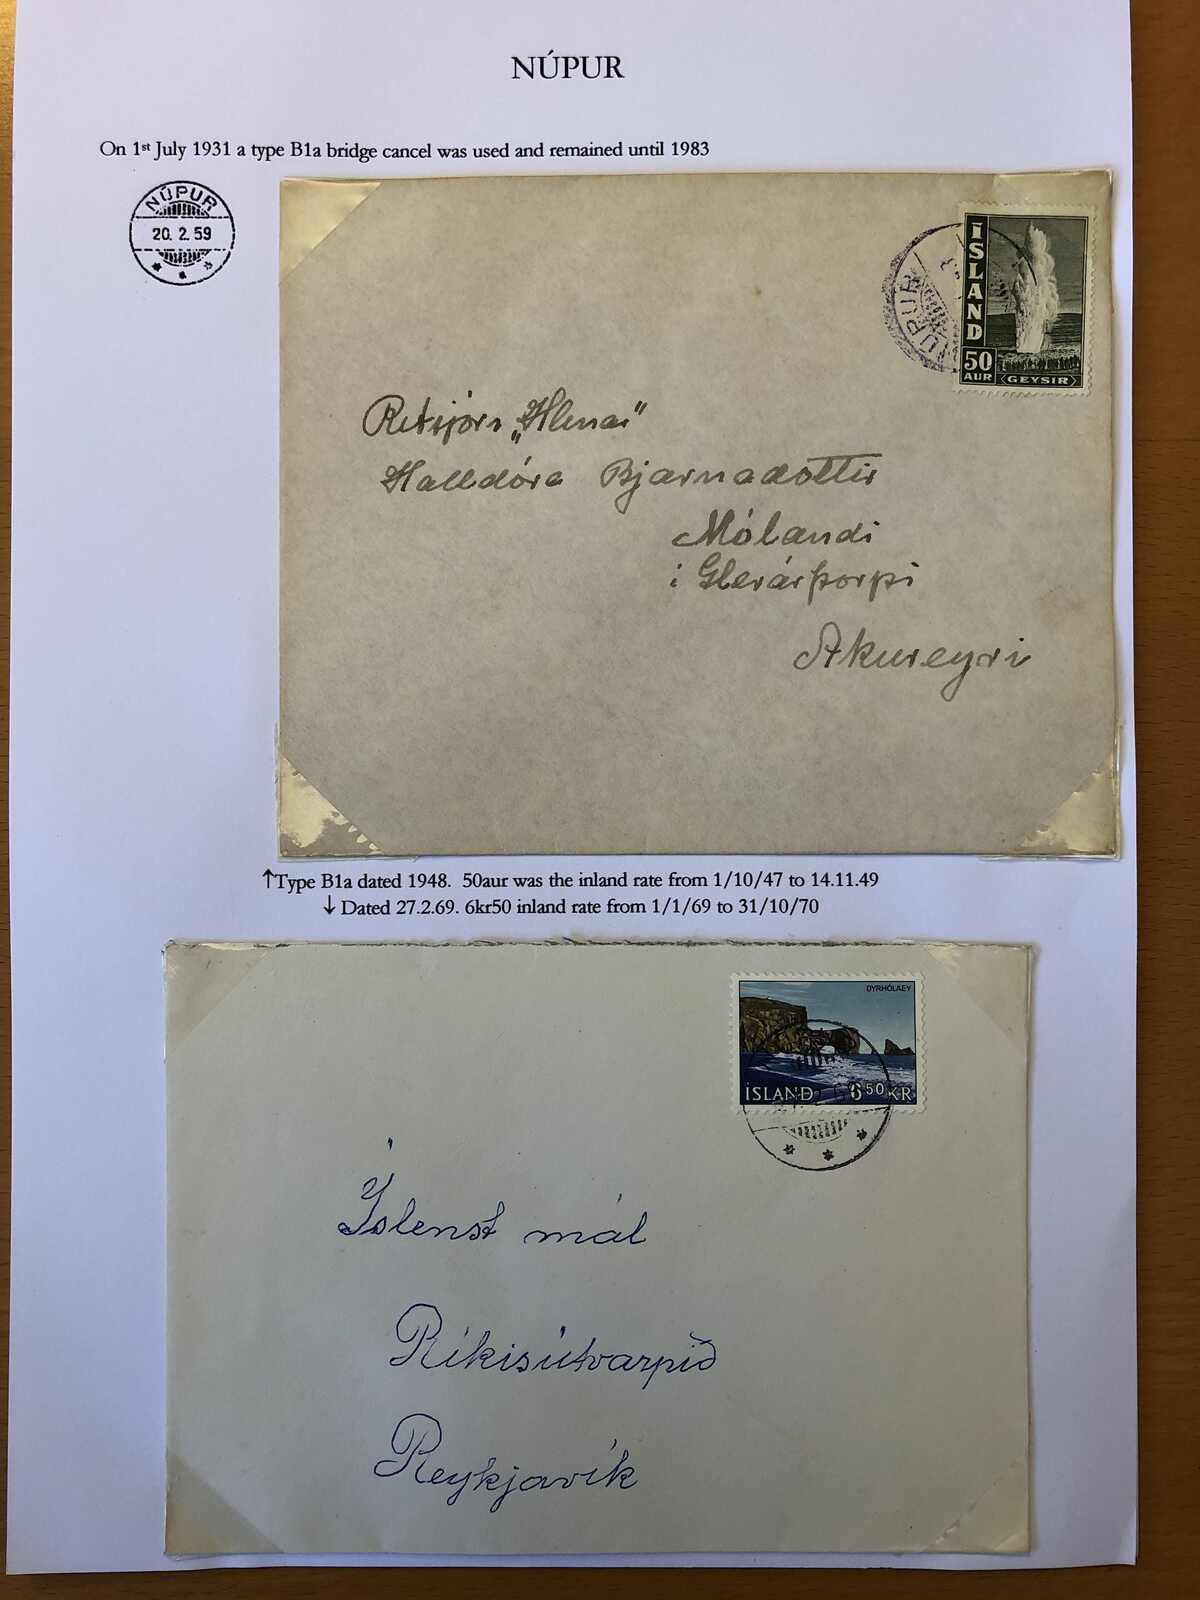 NÚPUR
On 1st July 1931 a type B1a bridge cancel was used and remained until 1983
NÚPUR
20. 2. 59
NÚPUR
ÍSLAND
50
AUR
GEYSIR
Ritstjóri „Hlínar"
Halldóra Bjarnadóttir
Mólandi
í Glerárþorpi
Akureyri
↑Type B1a dated 1948. 50aur was the inland rate from 1/10/47 to 14.11.49
↓Dated 27.2.69. 6kr50 inland rate from 1/1/69 to 31/10/70
DYRHÓLAEY
ÍSLAND 6.50 KR
Íslenst mál
Ríkisútvarpið
Reykjavík